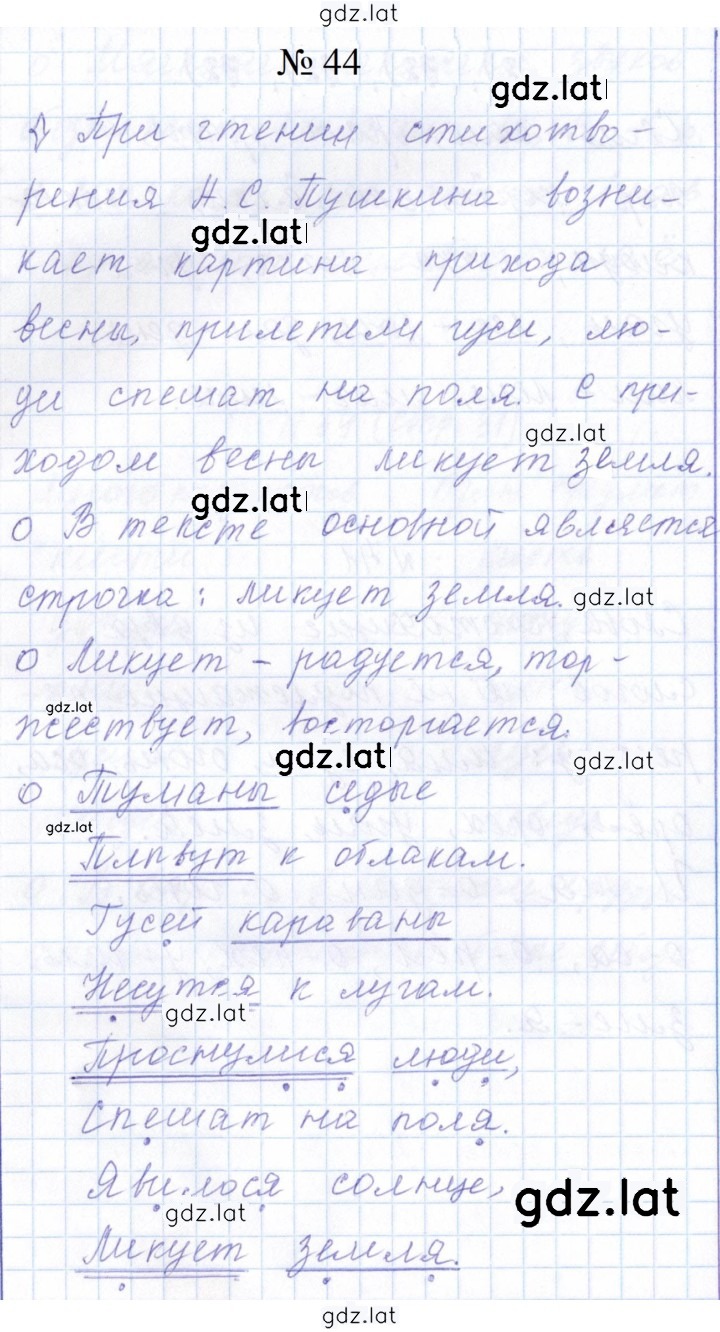 gdz.lat
№ 44
gdz.lat
При чтении стихотво-
рения А.С. Пушкина возни-
gdz.lat
кает картина прихода
весны, прилетели гуси, лю-
ди спешат на поля. С при-
gdz.lat
ходом весны ликует земля.
gdz.lat
о В тексте основной является
строчка: ликует земля.
gdz.lat
о Ликует – радуется, тор-
gdz.lat
жествует, восторгается.
gdz.lat
gdz.lat
о Туманы седые
gdz.lat
Плывут к облакам.
Гусей караваны
Несутся к лугам.
gdz.lat
Проснулися люди,
Спешат на поля.
Явилося солнце,
gdz.lat
gdz.lat
Ликует земля.
gdz.lat